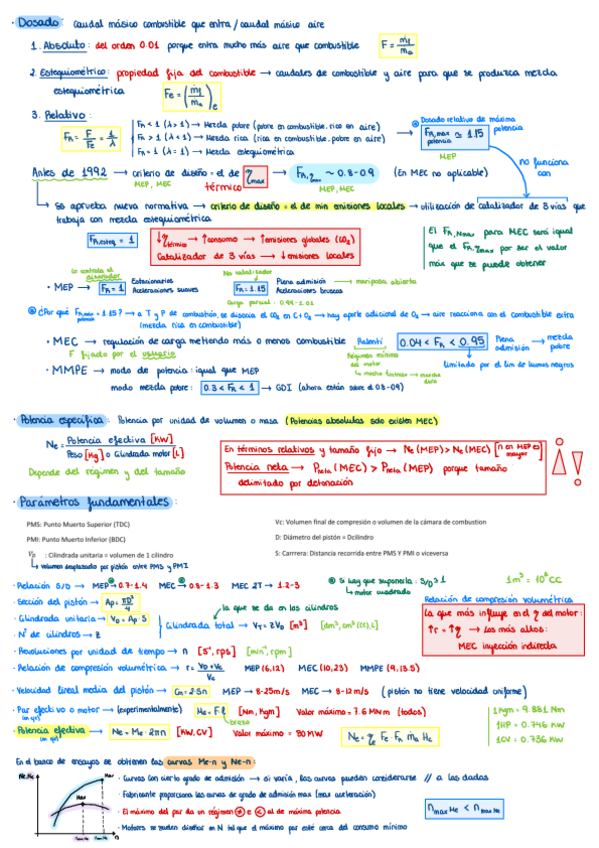 · Dosado: caudal másico combustible que entra / caudal másico aire
1. Absoluto: del orden 0.01 porque entra mucho más aire que combustible F = ṁf/ṁa
2. Estequiométrico: propiedad fija del combustible → caudales de combustible y aire para que se produzca mezcla
estequiométrica Fe = (ṁf/ṁa)e
3. Relativo:
FR = F/Fe = 1/λ
FR < 1 (λ > 1) → Mezcla pobre (pobre en combustible, rico en aire)
FR > 1 (λ < 1) → Mezcla rica (rica en combustible, pobre en aire)
FR = 1 (λ = 1) → Mezcla estequiométrica
Dosado relativo de máxima
potencia
FR,max potencia ≃ 1.15
MEP
no funciona
con
Antes de 1992 → criterio de diseño = el de ηmax → FR,ηmax ~ 0.8-0.9 (En MEC no aplicable)
MEP, MEC térmico MEP, MEC
↳ Se aprueba nueva normativa → criterio de diseño = el de min emisiones locales → utilización de Catalizador de 3 vías que
trabaja con mezcla estequiométrica
FR,esteq = 1
↓ηtérmico → ↑consumo → ↑emisiones globales (CO2)
Catalizador de 3 vías → ↓emisiones locales
El FR,Nmax para MEC será igual
que el FR,ηmax por ser el valor
máx que se puede obtener
lo controla el
No catalizador
· MEP → FR = 1 Estacionarios
Aceleraciones suaves
FR = 1.15 Plena admisión → mariposa abierta
Aceleraciones bruscas
Carga parcial: 0.99-1.01
¿Por qué FR,max potencia = 1.15? → a T y P de combustión, se disocia el CO2 en C + O2 → hay aporte adicional de O2 → aire reacciona con el combustible extra
(mezcla rica en combustible)
· MEC → regulación de carga metiendo más o menos combustible Ralentí 0.04 < FR < 0.95 Plena admisión → mezcla pobre
F fijado por el usuario
Régimen mínimo
del motor
limitado por el lim de humos negros
· MMPE → modo de potencia: igual que MEP
modo mezcla pobre: 0.3 < FR < 1 → GDI (ahora están sobre el 0.8-0.9)
· Potencia específica: Potencia por unidad de volumen o masa (Potencias absolutas solo existen MEC)
Ne = Potencia efectiva [KW] / Peso [Kg] o Cilindrada motor [L]
Depende del régimen y del tamaño
En términos relativos y tamaño fijo → Ne (MEP) > Ne (MEC) [n en MEP es mayor]
Potencia neta → Pneta (MEC) > Pneta (MEP) porque tamaño
delimitado por detonación
· Parámetros fundamentales:
PMS: Punto Muerto Superior (TDC)
PMI: Punto Muerto Inferior (BDC)
VD : Cilindrada unitaria = volumen de 1 cilindro
↳ Volumen desplazado por pistón entre PMS y PMI
Vc: Volumen final de compresión o volumen de la cámara de combustion
D: Diámetro del pistón = Dcilindro
S: Carrrera: Distancia recorrida entre PMS Y PMI o viceversa
· Relación S/D → MEP → 0.7-1.4 MEC → 0.8-1.3 MEC 2T → 1.2-3
Si hay que suponerla: S/D = 1
↳ motor cuadrado
1m³ = 10⁶ CC
· Sección del pistón → Ap = πD²/4
· Cilindrada unitaria → VD = Ap · S
· Nº de cilindros → Z
la que se da en los cilindros
Cilindrada total → VT = ZVD [m³] [dm³, cm³ (CC), L]
Relación de compresión volumétrica
La que más influye en el η del motor:
↑r = ↑η → Los más altos:
MEC inyección indirecta
· Revoluciones por unidad de tiempo → n [s⁻¹, rps] [min⁻¹, rpm]
· Relación de compresión volumétrica → r = (VD + Vc)/Vc MEP (6,12) MEC (10,23) MMPE (9,13.5)
· Velocidad lineal media del pistón → Cm = 2·S·n MEP → 8-25m/s MEC → 8-12m/s (pistón no tiene velocidad uniforme)
· Par efectivo o motor → (experimentalmente) Me = F·l [Nm, Kgm] Valor máximo = 7.6 MNm (todos)
brazo
· Potencia efectiva → Ne = Me·2πn [KW, CV] Valor máximo = 80 MW Ne = ηe Fe FR ṁa Hc
1Kgm = 9.881 Nm
1HP = 0.746 KW
1CV = 0.736 KW
En el banco de ensayos se obtienen las curvas Me-n y Ne-n:
Ne, Me
Max
Max
n
· Curvas con cierto grado de admisión → si varía, las curvas pueden considerarse // a las dadas
· Fabricante proporciona las curvas de grado de admisión max (max aceleración)
· El máximo del par da un régimen = o < al de máxima potencia
· Motores se suelen diseñar en N tal que el máximo par esté cerca del consumo mínimo
nmax Me < nmax Ne